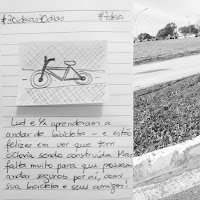 #30ideias30dias #7ideia
Lud e Pa aprenderam a
andar de bicicleta - e estão
felizes em ver que tem
ciclovia sendo construída. Mas
falta muito para que possam
andar seguros por aí, com
sua bicicleta e seus amigos!